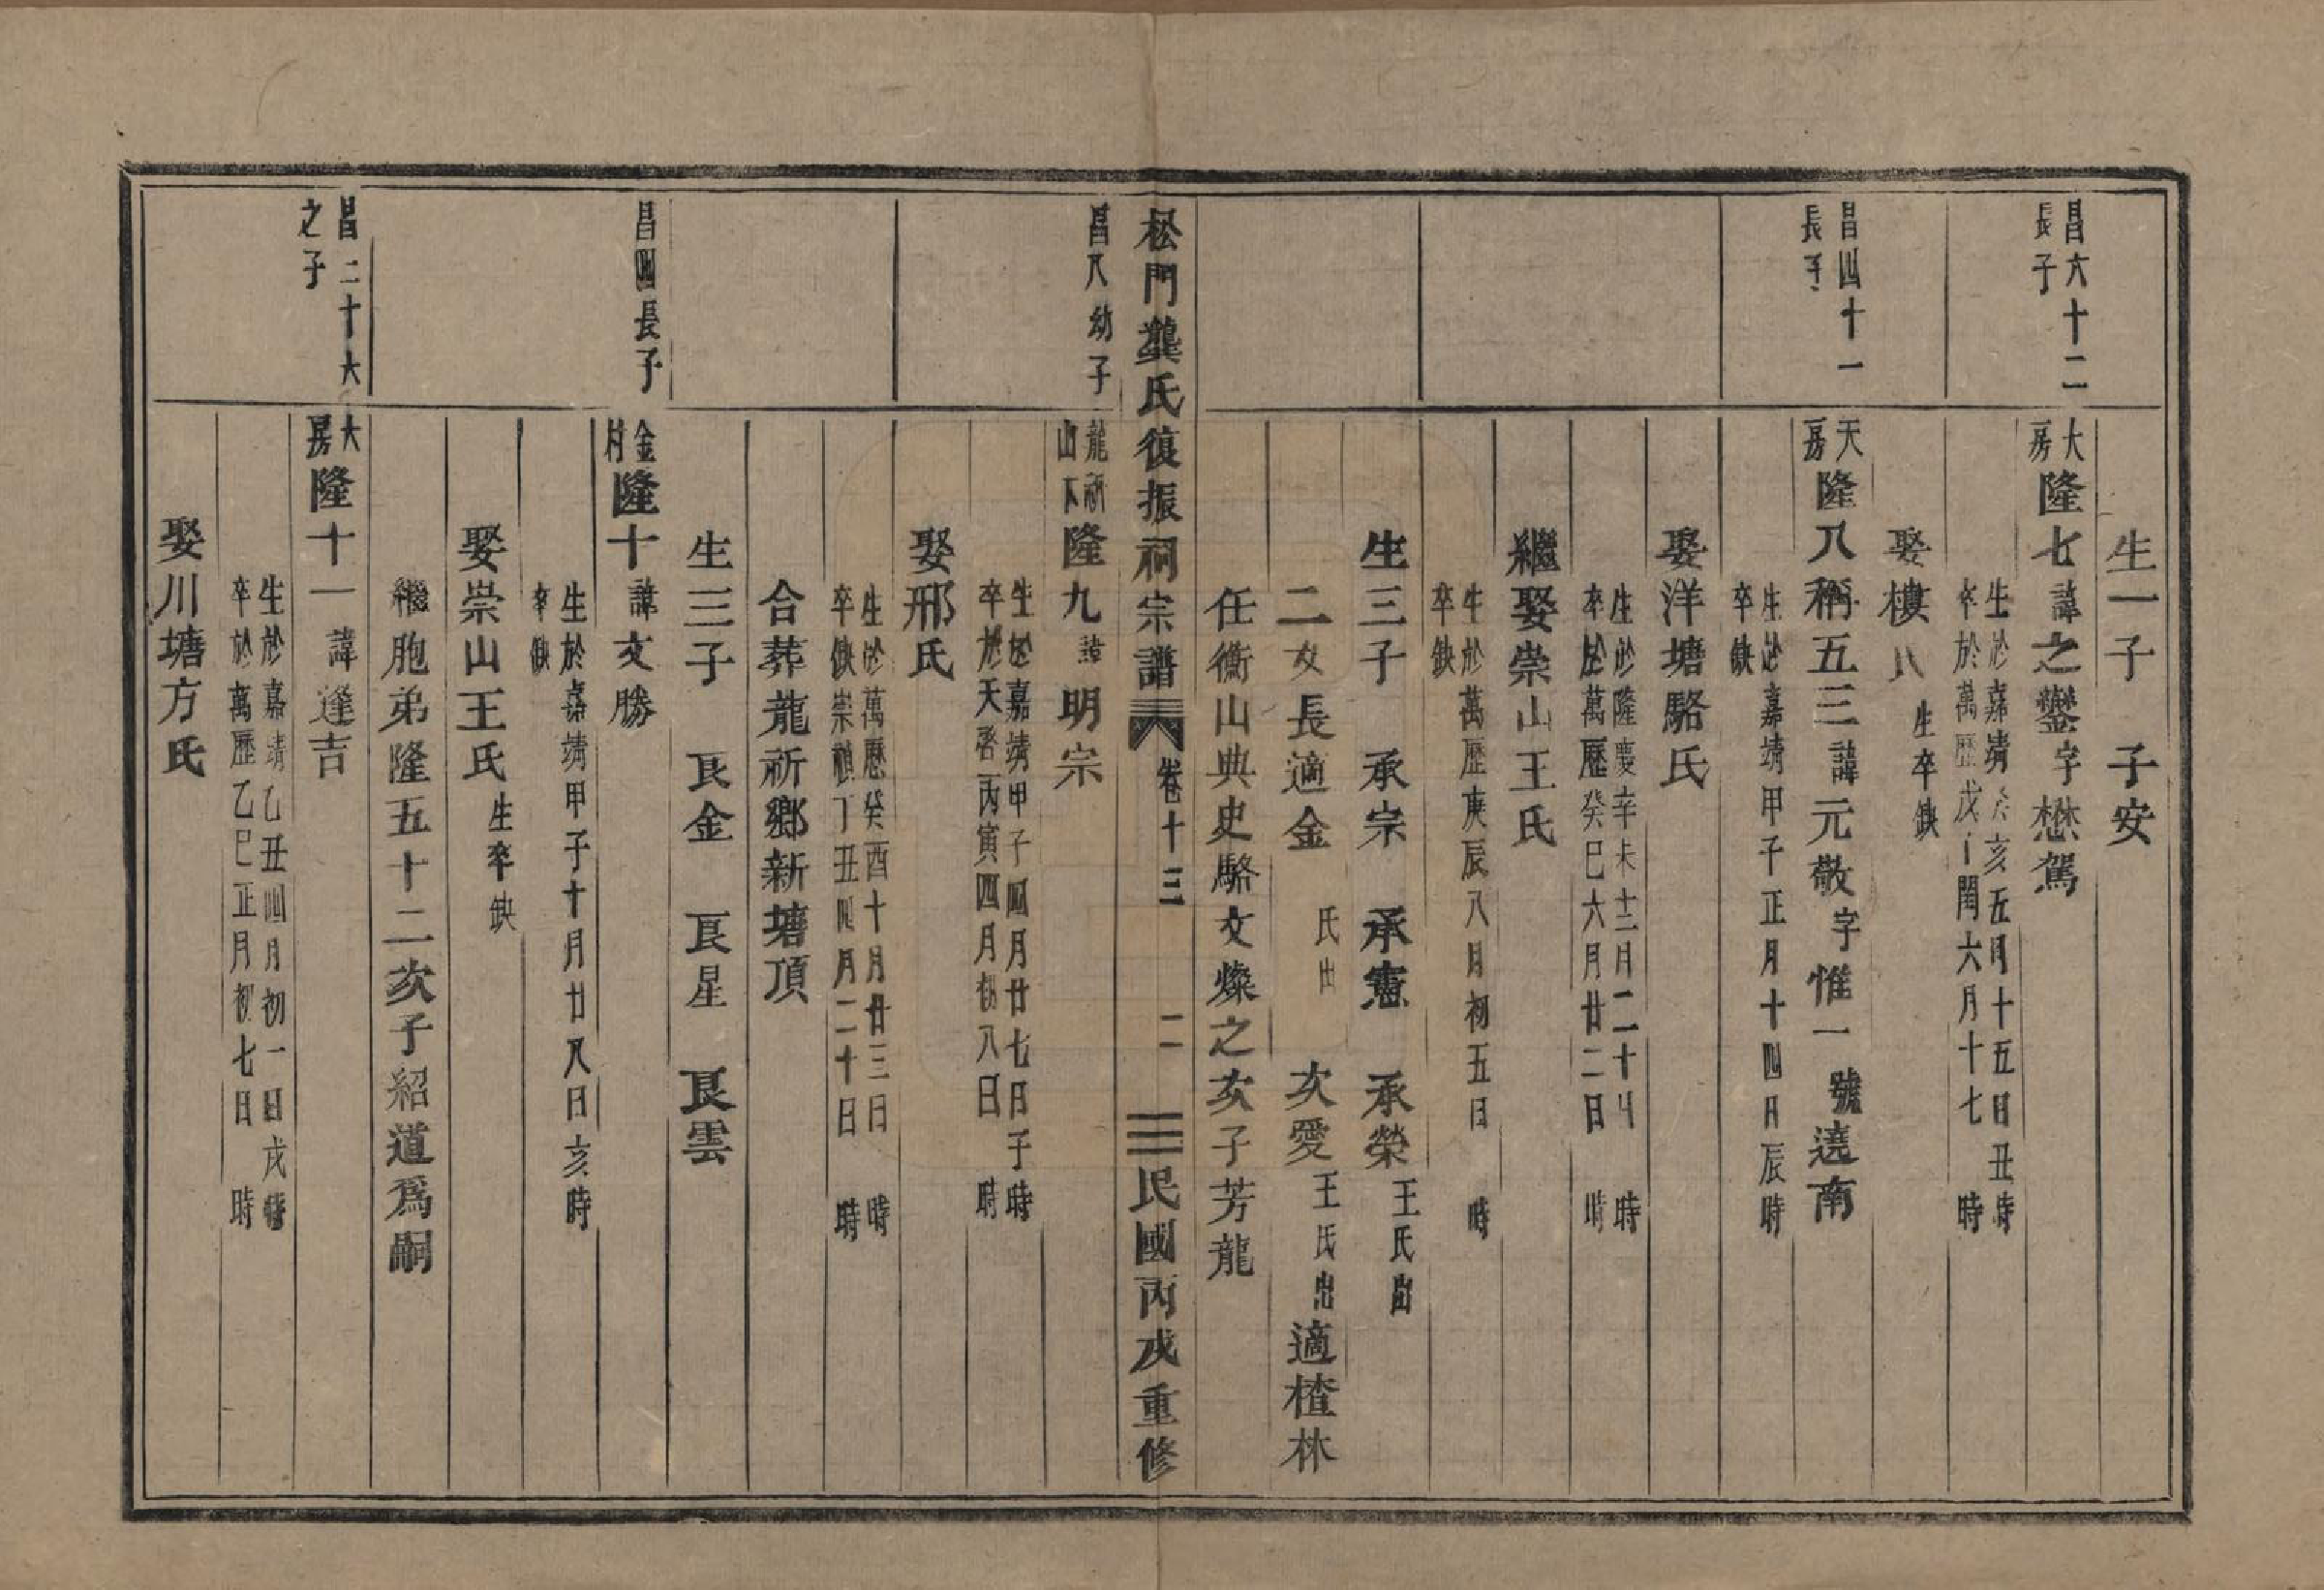 生一子　子安
昌六十二長子
大房隆七諱之鑾字懋駕
生於嘉靖癸亥五月十五日丑時
卒於萬歷戊　閏六月十七　時
娶樓氏生卒缺
昌四十一長子
天房隆八稱五三諱元敬字惟一號遶南
生於嘉靖甲子正月十四日辰時
卒缺
娶洋塘駱氏
生於隆慶辛未十二月二十　時
卒於萬歷癸巳六月廿二日　時
繼娶崇山王氏
生於萬歷庚辰八月初五日　時
卒缺
生三子　承宗　承憲　承榮王氏出
二女長適金　氏出　次愛王氏出適楂林
任衡山典史駱文燦之次子芳龍
松門龔氏復振祠宗譜　卷十三　二　民國丙戌重修
昌八幼子
龍祈山下隆九諱明宗
生於嘉靖甲子四月廿七日子時
卒於天啓丙寅四月初八日　時
娶邢氏
生於萬歷癸酉十月廿三日　時
卒缺崇禎丁丑四月二十日　時
合葬龍祈鄉新塘頂
生三子　良金　良星　良雲
昌四長子
金村隆十諱文勝
生於嘉靖甲子十月廿八日亥時
卒缺
娶崇山王氏生卒缺
繼胞弟隆五十二次子紹道爲嗣
昌二十六之子
大房隆十一諱逢吉
生於嘉靖乙丑四月初一日戌時
卒於萬歷乙巳正月初七日　時
娶川塘方氏